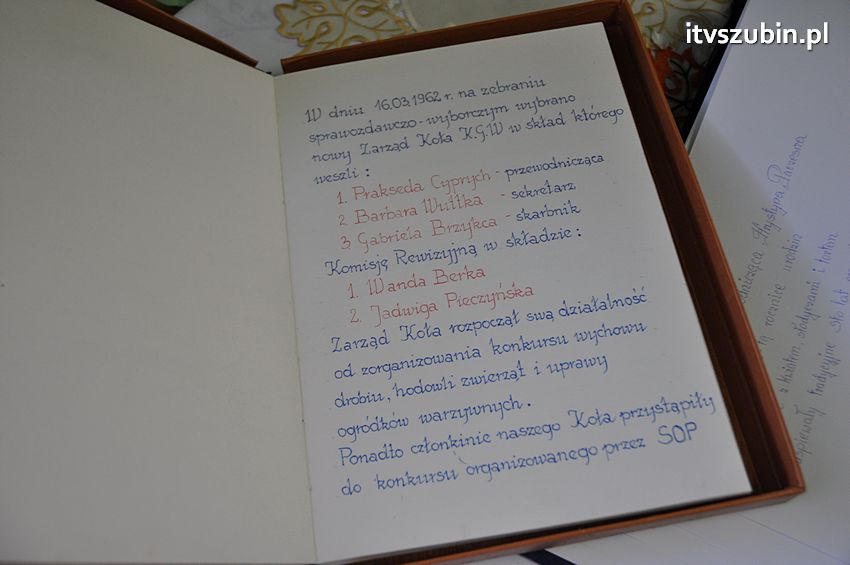 itvszubin.pl
W dniu 16.03.1962 r. na zebraniu
sprawozdawczo-wyborczym wybrano
nowy Zarząd Koła K.G.W w skład którego
weszli :
1. Prakseda Cyprych - przewodnicząca
2. Barbara Wuttka - sekretarz
3. Gabriela Brzykca - skarbnik
Komisję Rewizyjną w składzie :
1. Wanda Berka
2. Jadwiga Pieczyńska
Zarząd Koła rozpoczął swą działalność
od zorganizowania konkursu wychowu
drobiu, hodowli zwierząt i uprawy
ogródków warzywnych.
Ponadto członkinie naszego Koła przystąpiły
do konkursu organizowanego przez SOP
Krystyna
tą rocznicę urodzin
z kwiatem, słodyczami i tortem
tradycyjne sto lat